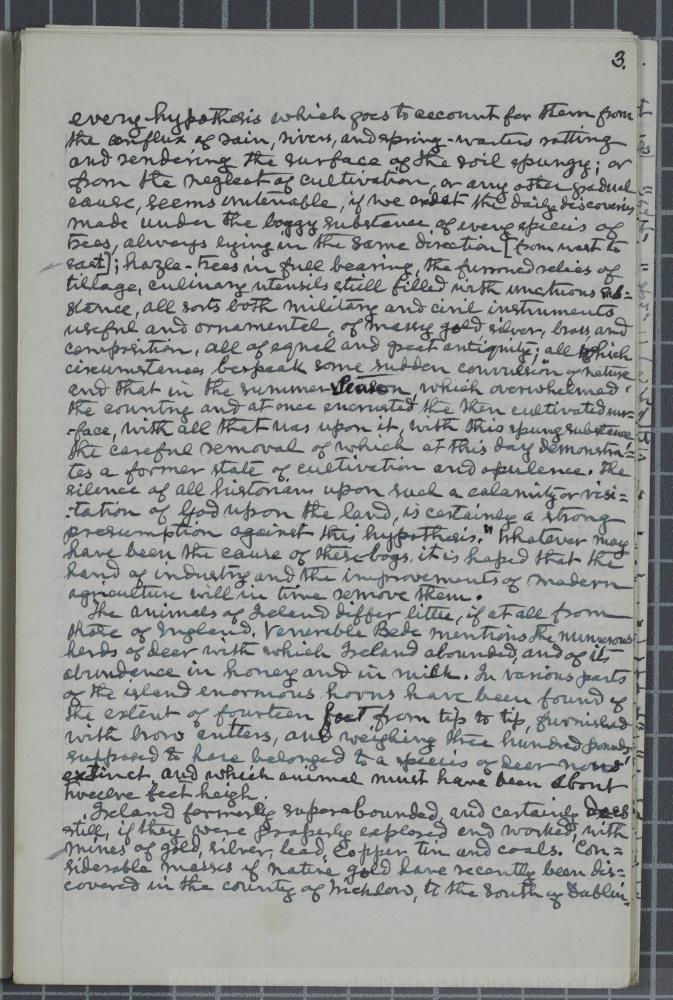 3.
every hypothesis which goes to account for them from
the conflux of rain, rivers, and spring-waters rotting
and rendering the surface of the soil spungy; or
from the neglect of cultivation, or any other gradual
cause, seems untenable, if we admit the daily discoveries
made under the boggy substance of every species of
trees, always lying in the same direction [from west to
east]; hazle-trees in full bearing, the furrowed relics of
tillage, culinary utensils still filled with unctuous sub=
stance, all sorts both military and civil instruments
useful and ornamental, of massy gold silver, brass and
composition, all of equal and great antiquity; all which
circumstances bespeak some sudden convulsion of nature
and that in the summer season, which overwhelmed
the country and at once encrusted the then cultivated sur-
-face, with all that was upon it, with this spung substance
the careful removal of which at this day demonstra=
tes a former state of cultivation and opulence. The
silence of all historians upon such a calamity or visi=
-tation of God upon the land, is certainly a strong
presumption against this hypothesis." Whatever may
have been the cause of these bogs, it is hoped that the
hand of industry and the improvements of modern
agriculture will in time remove them.
The animals of Ireland differ little, if at all from
those of England. Venerable Bede mentions the numerous
herds of deer with which Ireland abounded, and of its
abundance in honey and in milk. In various parts
of the island enormous horns have been found of
the extent of fourteen feet from tip to tip, furnished
with brow antlers, and weighing three hundred pounds
supposed to have belonged to a species of deer now
extinct, and which animal must have been about
twelve feet heigh.
Ireland formerly superabounded, and certainly does
still, if they were properly explored and worked, with
mines of gold, silver, lead, copper, tin and coals. Con=
siderable masses of native gold have recently been dis=
covered in the county of Wicklow, to the south of Dublin,